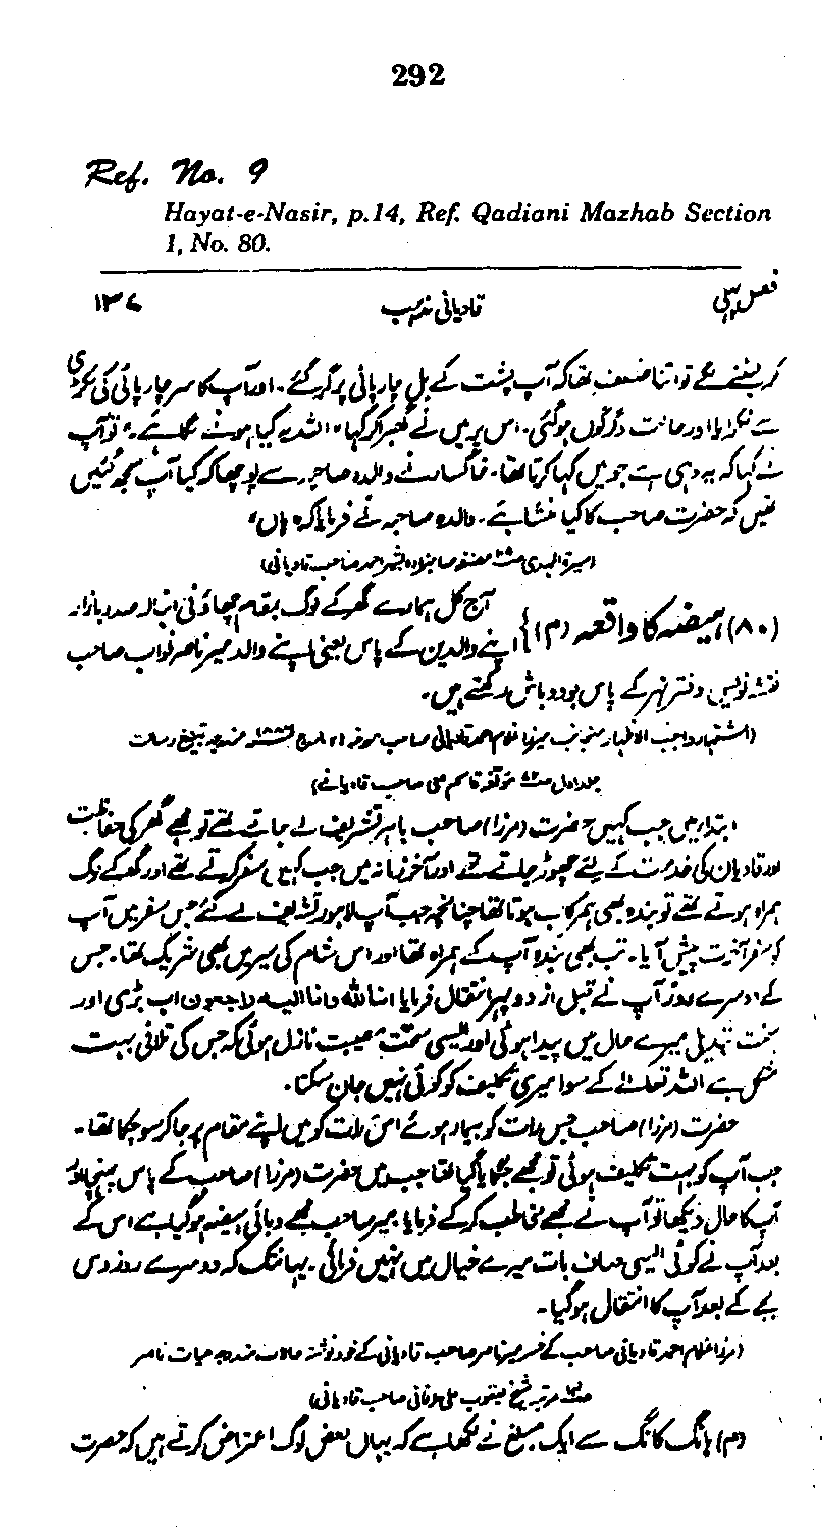 292
Ref. No. 9
Hayat-e-Nasir, p.14, Ref. Qadiani Mazhab Section
1, No. 80.
فصل پہلی قادیانی مذہب ۱۳۷
کر لیٹنے لگے تو اتنا ضعف تھا کہ آپ پشت کے بل چارپائی پر گر گئے۔ اور آپ کا سر چارپائی کی لکڑی
سے ٹکرایا اور حالت دگرگوں ہوگئی۔ اس پر میں نے گھبرا کر کہا "اللہ یہ کیا ہونے لگا ہے۔" تو آپ
نے کہا کہ یہ وہی ہے جو میں کہا کرتا تھا۔ خاکسار نے والدہ صاحبہ سے پوچھا کہ کیا آپ سمجھ گئیں
تھیں کہ حضرت صاحب کا کیا منشا ہے۔ والدہ صاحبہ نے فرمایا کہ ہاں"
(سیرۃ المہدی مصنفہ صاحبزادہ بشیر احمد صاحب قادیانی)
(۸۰) ہیضہ کا واقعہ (م) } آج کل ہمارے گھر کے لوگ بمقام چھاؤنی انبالہ صدر بازار
اپنے والدین کے پاس یعنی اپنے والد میر ناصر نواب صاحب
نقشہ نویس دفتر نہر کے پاس بود و باش رکھتے ہیں۔
(اشتہار واجب الاظہار منجانب میرزا غلام احمد قادیانی صاحب مورخہ مارچ مندرجہ تبلیغ رسالت
جلد اول مؤلفہ قاسم علی صاحب قادیانی)
ابتداء میں جب کہیں حضرت (مرزا) صاحب باہر تشریف لے جاتے تھے تو مجھے گھر کی حفاظت
اور قادیان کی خدمت کے لئے چھوڑ جاتے تھے اور آخر زمانہ میں جب کہیں سفر کرتے تھے اور گھر کے لوگ
ہمراہ ہوتے تھے تو بندہ بھی ہمرکاب ہوتا تھا چنانچہ جب آپ لاہور تشریف لے گئے جس سفر میں آپ
کو سفر آخرت پیش آیا۔ تب بھی بندہ آپ کے ہمراہ تھا اور اس شام کی سیر میں بھی شریک تھا۔ جس
کے دوسرے روز آپ نے قبل از دوپہر انتقال فرمایا انا للہ وانا الیہ راجعون اب بڑی اور
سخت تبدیلی میرے حال میں پیدا ہوئی اور ایسی سخت مصیبت نازل ہوئی کہ جس کی تلافی بہت
مشکل ہے اللہ تعالیٰ کے سوا میری تکلیف کو کوئی نہیں جان سکتا۔
حضرت (مرزا) صاحب جس رات کو بیمار ہوئے اس رات کو میں اپنے مقام پر جا کر سو چکا تھا۔
جب آپ کو بہت تکلیف ہوئی تو مجھے جگایا گیا تھا جب میں حضرت (مرزا) صاحب کے پاس پہنچا اور
آپ کا حال دیکھا تو آپ نے مجھے مخاطب کر کے فرمایا۔ میر صاحب مجھے وبائی ہیضہ ہوگیا ہے اس کے
بعد آپ نے کوئی ایسی صاف بات میرے خیال میں نہیں فرمائی۔ یہاں تک کہ دوسرے روز دس
بجے کے بعد آپ کا انتقال ہوگیا۔
(مرزا غلام احمد قادیانی صاحب کے خسر میر ناصر صاحب قادیانی کے خود نوشتہ حالات مندرجہ حیات ناصر
مرتبہ شیخ یعقوب علی عرفانی صاحب قادیانی)
(م) ہانگ کانگ سے ایک مبلغ نے لکھا ہے کہ یہاں بعض لوگ اعتراض کرتے ہیں کہ حضرت